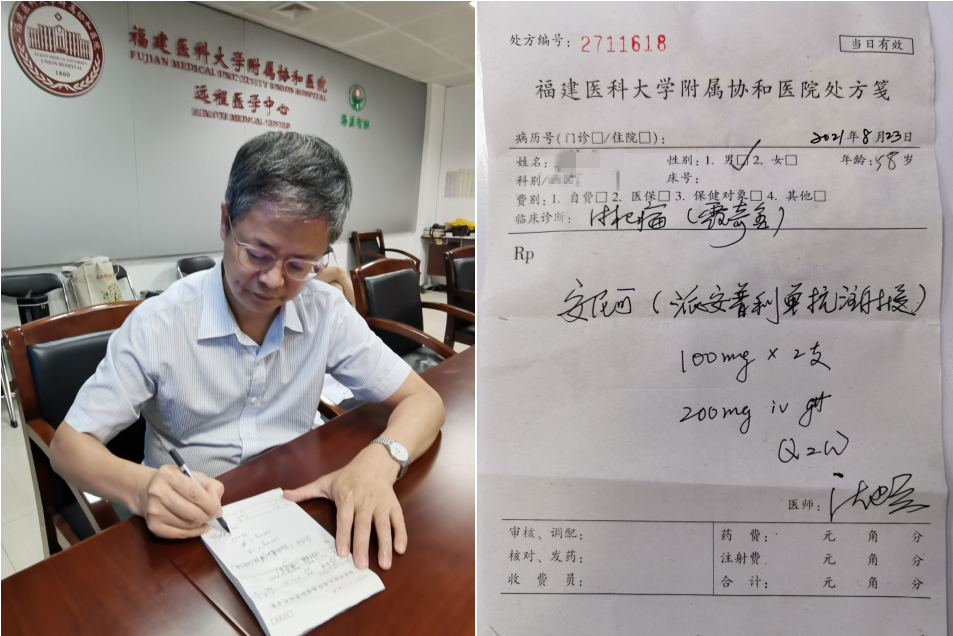 福建医科大学附属协和医院
FUJIAN MEDICAL UNIVERSITY UNION HOSPITAL
远程医学中心
REMOTE MEDICAL CENTER
1860
处方编号: 2711618
当日有效
福建医科大学附属协和医院处方笺
病历号(门诊□/住院□):
2021年8月23日
姓名:
性别: 1. 男□ 2. 女□
年龄: 58岁
科别/
床号:
费别: 1. 自费□ 2. 医保□ 3. 保健对象□ 4. 其他□
临床诊断: 淋巴瘤(霍奇金)
Rp
安尼可(派安普利单抗注射液)
100mg × 2支
200mg iv gtt
Q2W
医师:
审核、调配:
药费: 元 角 分
核对、发药:
注射费 元 角 分
收费员:
合计: 元 角 分